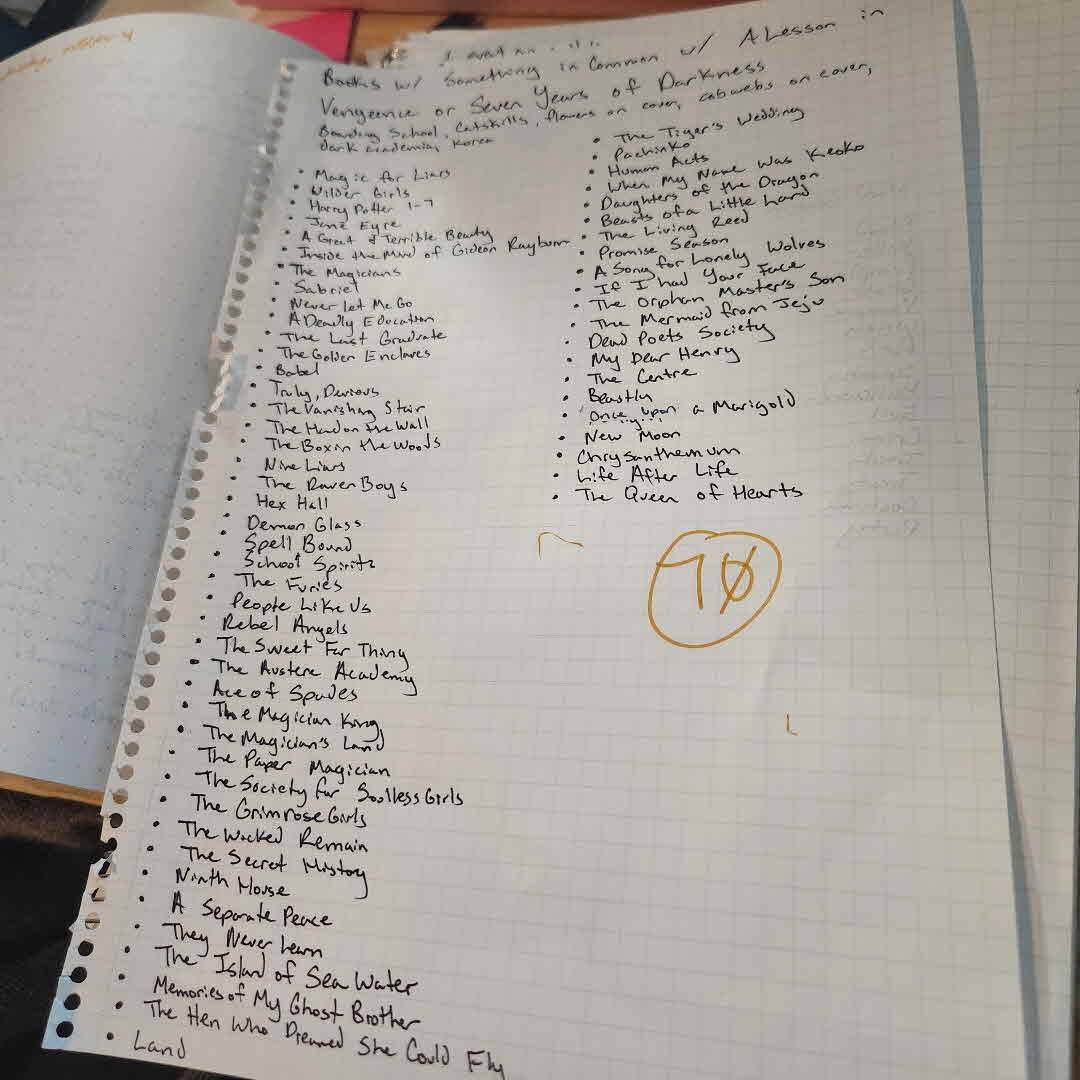 Books w/ Something in Common w/ A Lesson in
Vengeance or Seven Years of Darkness
Boarding School, Catskills, flowers on cover, cobwebs on cover,
dark academia, Korea
• Magic for Liars
• Wilder Girls
• Harry Potter 1-7
• Jane Eyre
• A Great & Terrible Beauty
• Inside the Mind of Gideon Rayburn
• The Magicians
• Sabriel
• Never Let Me Go
• A Deadly Education
• The Last Graduate
• The Golden Enclaves
• Babel
• Truly, Devious
• The Vanishing Stair
• The Hand on the Wall
• The Box in the Woods
• Nine Liars
• The Raven Boys
• Hex Hall
• Demon Glass
• Spell Bound
• School Spirits
• The Furies
• People Like Us
• Rebel Angels
• The Sweet Far Thing
• The Austere Academy
• Ace of Spades
• The Magician King
• The Magician's Land
• The Paper Magician
• The Society for Soulless Girls
• The Grimrose Girls
• The Wicked Remain
• The Secret History
• Ninth House
• A Separate Peace
• They Never Learn
• The Island of Sea Water
• Memories of My Ghost Brother
• The Hen Who Dreamed She Could Fly
• Land
• The Tiger's Wedding
• Pachinko
• Human Acts
• When My Name Was Keoko
• Daughters of the Dragon
• Beasts of a Little Land
• The Living Reed
• Promise Season
• A Song for Lonely Wolves
• If I had Your Face
• The Orphan Master's Son
• The Mermaid from Jeju
• Dead Poets Society
• My Dear Henry
• The Centre
• Beastly
• Once Upon a Marigold
• New Moon
• Chrysanthemum
• Life After Life
• The Queen of Hearts
70